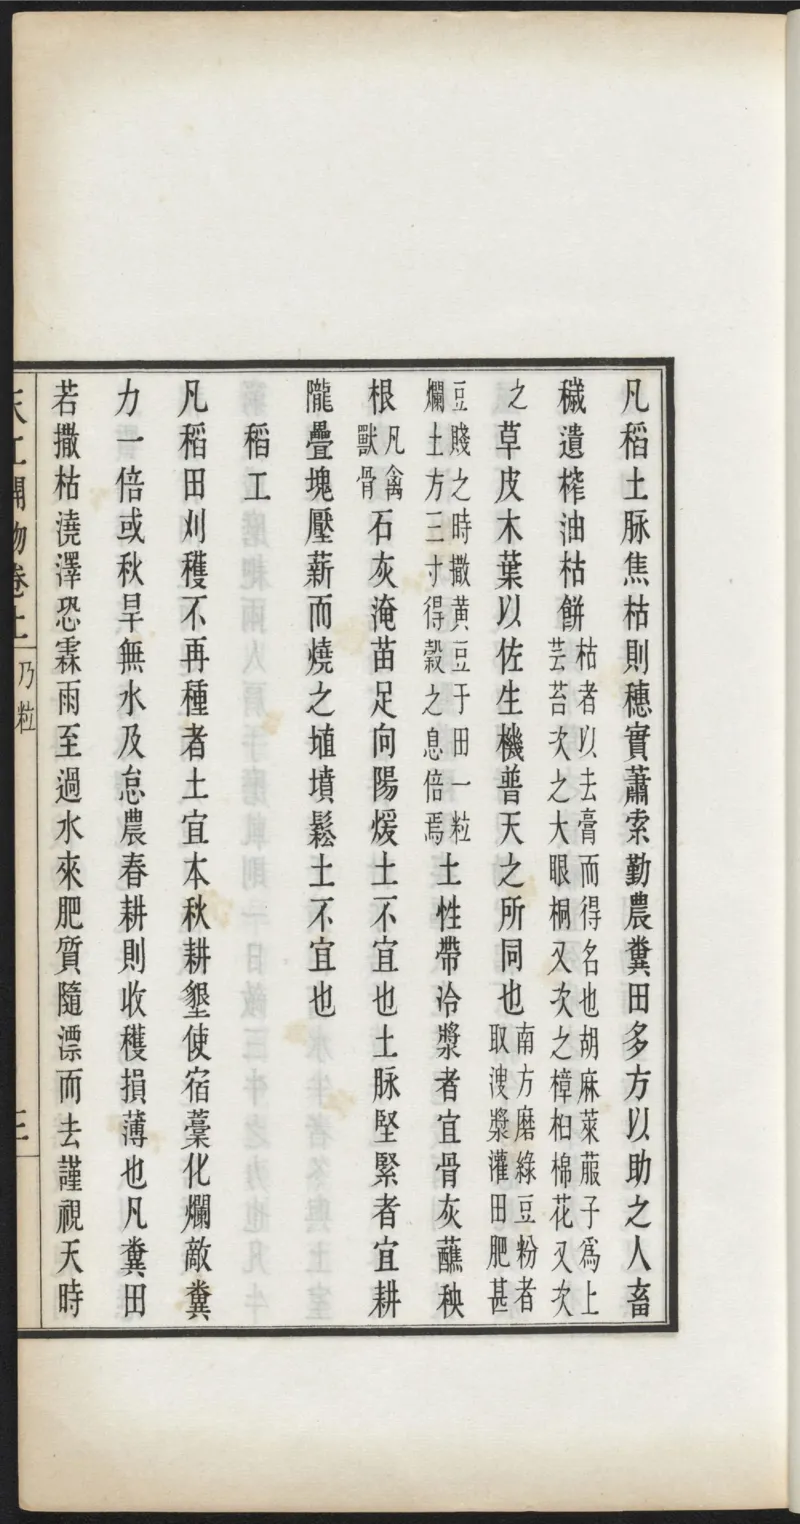 凡稻土脉焦枯則穗實蕭索勤農糞田多方以助之人畜
穢遺榨油枯餅枯者以去膏而得名也胡麻萊菔子爲上芸苔次之大眼桐又次之樟桕棉花又次
之草皮木葉以佐生機普天之所同也南方磨綠豆粉者取溲漿灌田肥甚
豆賤之時撒黃豆于田一粒爛土方三寸得穀之息倍焉土性帶冷漿者宜骨灰蘸秧
根凡禽獸骨石灰淹苗足向陽煖土不宜也土脉堅緊者宜耕
隴疊塊壓薪而燒之埴墳鬆土不宜也
稻工
凡稻田刈穫不再種者土宜本秋耕墾使宿藁化爛敵糞
力一倍或秋旱無水及怠農春耕則收穫損薄也凡糞田
若撒枯澆澤恐霖雨至過水來肥質隨漂而去謹視天時
天工開物卷上 乃粒 三